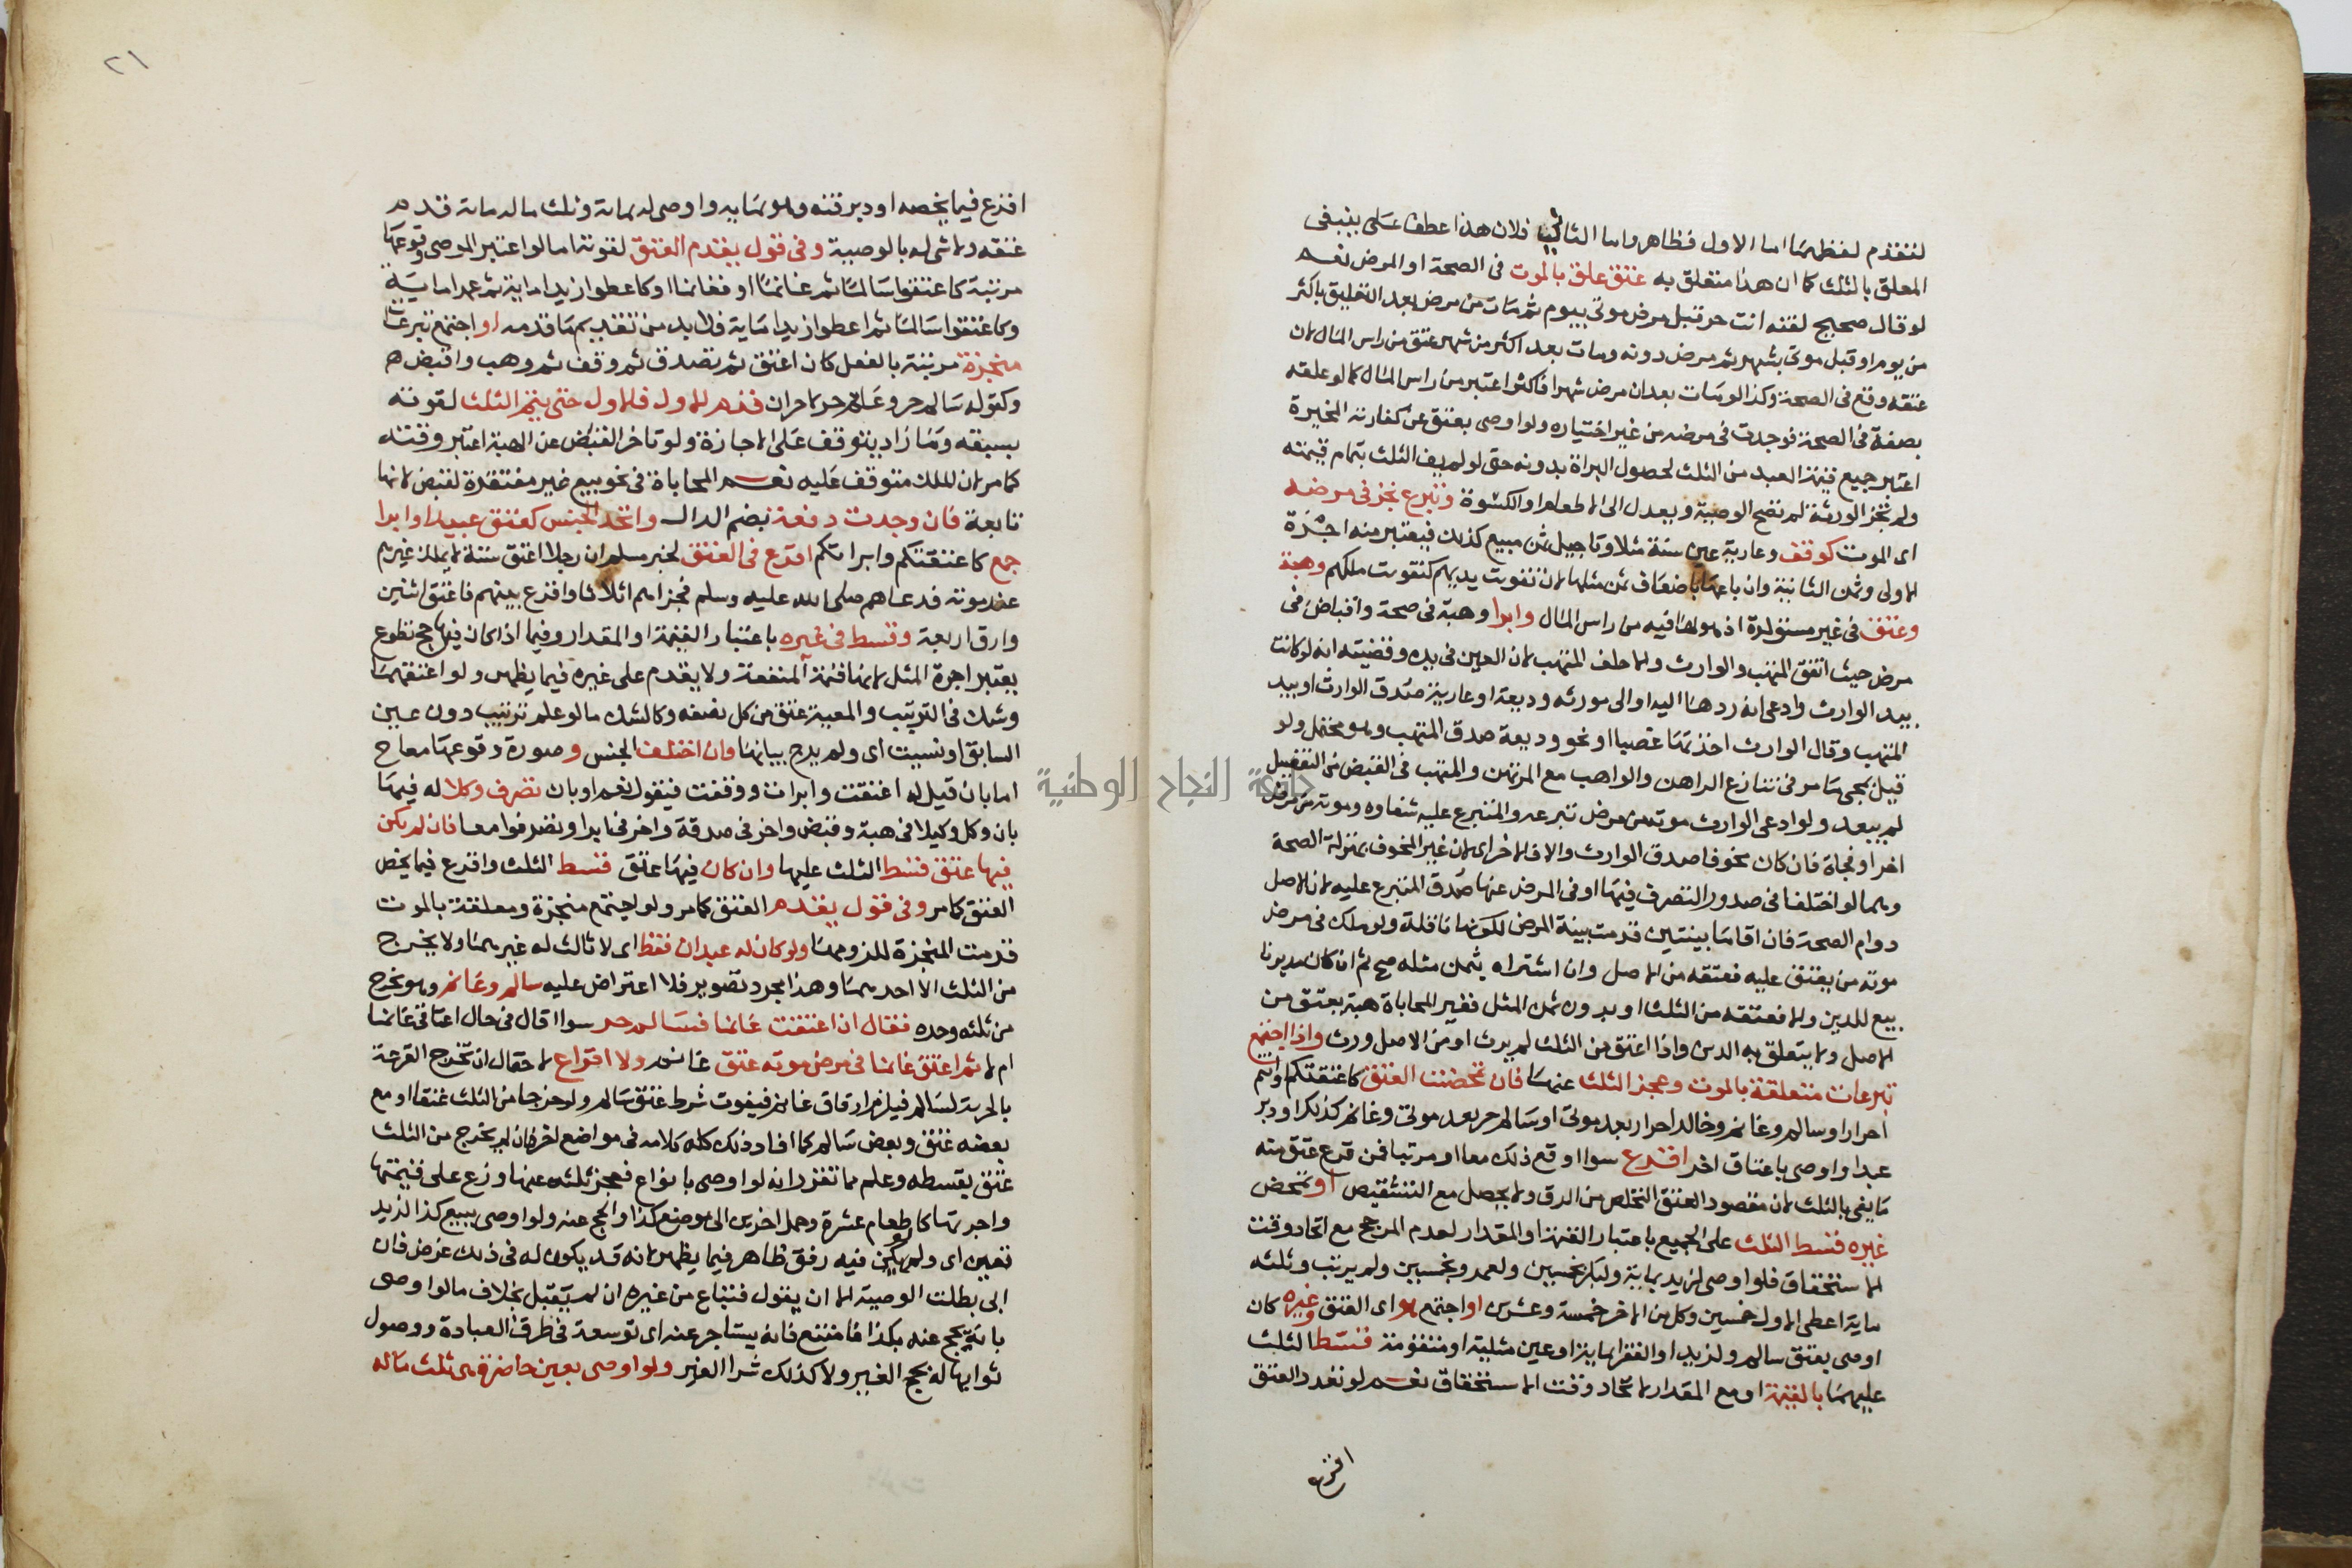 لتقدم لفظهما اما الاول فظاهر واما الثاني فلان هذا عطف على ينبغي
المعلق بالثلث كما ان هذا متعلق به عتق علق بالموت في الصحة او المرض نعم
لو قال صحيح لقنه انت حر قبل مرض موتي بيوم ثم مات من مرض بعد التعليق باكثر
من يوم او قبل موتي بشهر ثم مرض دونه ومات بعد اكثر من شهر عتق من راس المال لان
عتقه وقع في الصحة وكذا لو مات بعد ان مرض شهرا فاكثر اعتبر من راس المال كما لو علقه
بصفة في الصحة فوجدت في مرضه من غير اختياره ولو اوصى بعتق عن كفارته المخيرة
اعتبر جميع قيمة العبد من الثلث لحصول البراة بدونه حتى لو لم يف الثلث بتمام قيمته
ولم تجز الورثة لم تصح الوصية ويعدل الى الاطعام او الكسوة وتبرع نجز في مرضه
اي الموت كوقف وعارية عين سنة مثلا وتاجيل ثمن مبيع كذلك فيعتبر منه اجرة
الاولى وثمن الثانية وان باعها باضعاف ثمن مثلها لان تفويت يدهم كتفويت ملكهم وهبة
وعتق في غير مستولدة اذ هو لها فيه من راس المال وابرا وهبة في صحة واقباض في
مرض حيث اتفق المتهب والوارث والا حلف المتهب لان العين في يده وقضيته انه لو كانت
بيد الوارث وادعى انه ردها اليه او الى مورثه وديعة او عارية صدق الوارث او بيد
المتهب وقال الوارث اخذتها غصبا او نحو وديعة صدق المتهب وهو محتمل ولو
قيل بمجي ما مر في تنازع الراهن والواهب مع المرتهن والمتهب في القبض من التفصيل
لم يبعد ولو ادعى الوارث موته من مرض تبرعه والمتبرع عليه شفاوه وموته من مرض
اخر او فجاة فان كان مخوفا صدق الوارث والا فالاخر اي لان غير المخوف بمنزلة الصحة
وهما لو اختلفا في صدور التصرف فيها او في المرض عنها صدق المتبرع عليه لان الاصل
دوام الصحة فان اقاما بينتين قدمت بينة المرض لكونها ناقلة ولو ملك في مرض
موته من يعتق عليه فعتقه من الاصل وان اشتراه بثمن مثله صح ثم ان كان مديونا
بيع للدين والا فعتقه من الثلث او بدون ثمن المثل فقدر المحاباة هبة يعتق من
الاصل ولا يتعلق به الدين واذا اعتق من الثلث لم يرث او من الاصل ورث واذا اجتمع
تبرعات متعلقة بالموت وعجز الثلث عنها فان تمحضت العتق كاعتقتكم او انتم
احرار او سالم وغانم وخالد احرار بعد موتي او سالم حر بعد موتي وغانم كذلك او دبر
عبدا واوصى باعتاق اخر اقرع سوا اوقع ذلك معا او مرتبا فمن قرع عتق منه
ما يفي بالثلث لان مقصود العتق التخلص من الرق ولا يحصل مع التشقيص او تمحض
غيره قسط الثلث على الجميع باعتبار القيمة او المقدار لعدم المرجح مع اتحاد وقت
الاستحقاق فلو اوصى لزيد بماية ولبكر بخمسين ولعمرو بخمسين ولم يرتب وثلثه
ماية اعطي الاول خمسين وكل من الاخر خمسة وعشرين او اجتمع هو اي العتق وغيره كان
اوصى بعتق سالم ولزيد او الفقرا بماية او عين مثلية او متقومة قسط الثلث
عليهما بالقيمة او مع المقدار لاتحاد وقت الاستحقاق نعم لو تعدد العتق
اقرع
٢١
اقرع فيما يخصه او دبر قنه وهو بماية واوصى له بماية وثلث ماله ماية قدم
عتقه ولا شي له بالوصية وفي قول يقدم العتق لقوته اما لو اعتبر الموصي وقوعها
مرتبة كاعتقوا سالما ثم غانما او فغانما او كاعطوا زيدا ماية ثم عمرا ماية
وكاعتقوا سالما ثم اعطوا زيدا ماية فلا بد من تقديم ما قدمه او اجتمع تبرعات
منجزة مرتبة بالفعل كان اعتق ثم تصدق ثم وقف ثم وهب واقبض ه
وكقوله سالم حر وغانم حر لا حران قدم الاول فالاول حتى يتم الثلث لقوته
بسبقه وما زاد يتوقف على الاجازة ولو تاخر القبض عن الهبة اعتبر وقته
كما مر لان الملك متوقف عليه نعم المحاباة في نحو بيع غير مفتقرة لقبض لانها
تابعة فان وجدت دفعة بضم الدال واتحد الجنس كعتق عبيد او ابرا
جمع كاعتقتكم وابراتكم اقرع في العتق لخبر مسلم ان رجلا اعتق ستة لا يملك غيرهم
عند موته فدعاهم صلى الله عليه وسلم فجزاهم اثلاثا واقرع بينهم فاعتق اثنين
وارق اربعة وقسط في غيره باعتبار القيمة او المقدار وفيما اذا كان فيها حج تطوع
يعتبر اجرة المثل لانها قيمة المنفعة ولا يقدم على غيره فيما يظهر ولو اعتقهما
وشك في الترتيب والمعية عتق من كل نصفه وكالشك ما لو علم ترتيب دون عين
السابق او نسيت اي ولم يرج بيانها فان اختلف الجنس وصورة وقوعها معا ح
اما بان قيل له اعتقت وابرات ووقفت فيقول نعم او بان تصرف وكلا له فيها
بان وكل وكيلا في هبة وقبض واخر في صدقة واخر في ابرا وتصرفوا معا فان لم يكن
فيها عتق قسط الثلث عليها وان كان فيها عتق قسط الثلث واقرع فيما يخص
العتق كما مر وفي قول يقدم العتق كما مر ولو اجتمع منجزة ومعلقة بالموت
قدمت المنجزة للزومها ولو كان له عبدان فقط اي لا ثالث له غيرهما ولا يخرج
من الثلث الا احدهما وهذا مجرد تصوير فلا اعتراض عليه سالم وغانم وهو يخرج
من ثلثه وحده فقال ان اعتقت غانما فسالم حر سوا اقال في حال اعتاقي غانما
ام لا ثم اعتق غانما في مرض موته عتق غانم ولا اقراع لاحتمال ان تخرج القرعة
بالحرية لسالم فيلزم ارقاق غانم فيفوت شرط عتق سالم ولو خرجا من الثلث عتقا او مع
بعضه عتق وبعض سالم كما افاد ذلك كله كلامه في مواضع اخر فان لم يخرج من الثلث
عتق بقسطه وعلم مما تقرر انه لو اوصى بانواع فعجز ثلثه عنها وزع على قيمتها
واجرتها كاطعام عشرة وحمل اخرين الى موضع كذا والحج عنه ولو اوصى ببيع كذا لزيد
تعين اي ولو لم يكن فيه رفق ظاهر فيما يظهر لانه قد يكون له في ذلك غرض فان
ابى بطلت الوصية الا ان يقول فتباع من غيره ان لم يقبل بخلاف ما لو اوصى
بانه يحج عنه بكذا فامتنع فانه يستاجر عنه اي توسعة في طرق العبادة ووصول
ثوابها له بحج الغير ولا كذلك شرا الغير ولو اوصى بعين حاضرة هي ثلث ماله